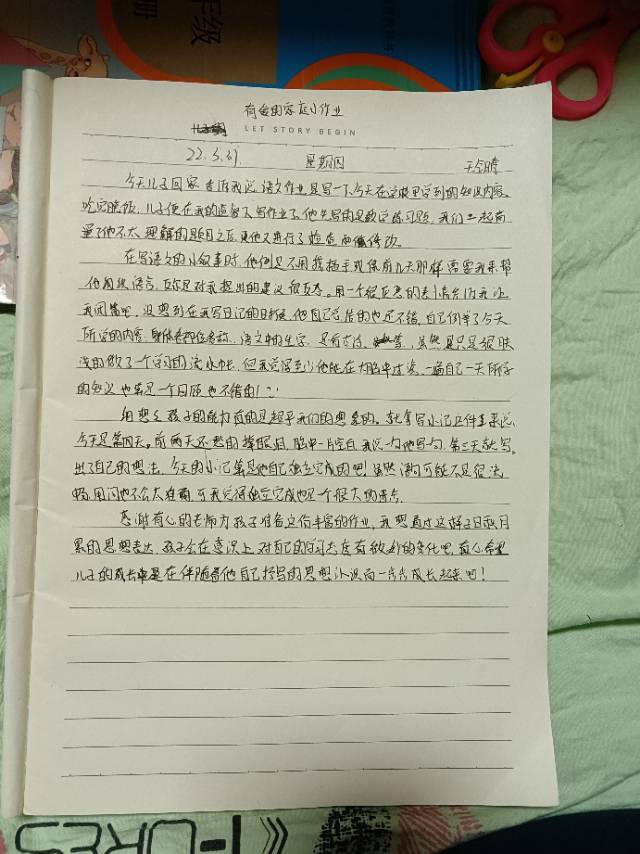 年级
册
有爱的家庭小作业
LET STORY BEGIN
22.3.31 星期四 天气晴
今天儿子回家告诉我说语文作业是写一下今天在学校里学到的知识内容。
吃完晚饭,儿子便在我的监督下写作业了,他先写的是数学练习题,我们一起商
量了他不太理解的题目之后,其他又进行了检查和修改。
在写语文的小叙事时,他倒是不用我插手,现像前几天那样需要我来帮
他组织语言,反而是对我提出的建议很反感。用一个很反感的表情告诉我让
我闭嘴吧,没想到在我写日记的时候,他自己总结的也还不错,自己列举了今天
所学的内容,身体各部位名称,语文中的生字,是前方法,等,虽然是只是很肤
浅的做了一个学习的流水帐,但我觉得至少他能在大脑中过滤一遍自己一天所学
的知识也算是一个回顾也不错的!
细想之孩子的能力真的是超乎我们的想象的。就拿写小记这件事来说,
今天是第四天。前两天还愁的掉眼泪,脑中一片空白,我说一句他写一句,第三天就写
出了自己的想法,今天的小记算是他自己独立完成的吧!虽然语句可能不是很流
畅,用词也不会太准确,可我觉得独立完成也是个很大的亮点。
感谢有心的老师为孩子准备这份丰富的作业,我想通过这样子日积月
累的思想表达,孩子会在意识上对自己的学习态度有微妙的变化吧,真心希望
儿子的成长中是在伴随着他自己抒写的思想认识而一点点成长起来吧!
FORES